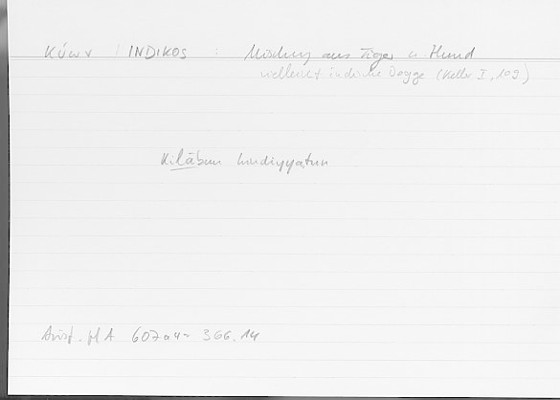 Κύων INDIKOS : Mischung aus Tiger u. Hund
vielleicht indische Dogge (Keller I, 109)
Kilābun hindiyyatun
Arist. 607a4 = 366.14